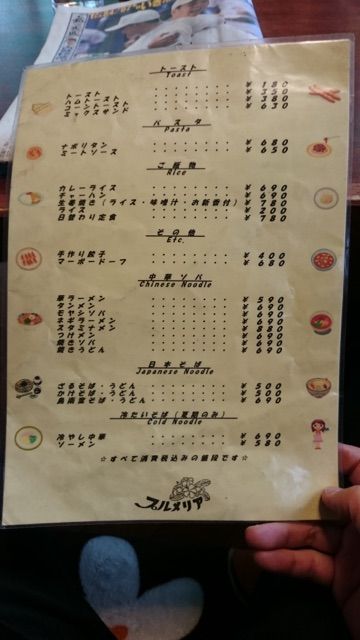 トースト
Toast
トースト ・・・・・・・・ ¥ 180
ハムトースト ・・・・・・・・ ¥ 350
コーントースト ・・・・・・・・ ¥ 380
ミックスサンド ・・・・・・・・ ¥ 630
パスタ
Pasta
ナポリタン ・・・・・・・・ ¥ 680
ミートソース ・・・・・・・・ ¥ 650
ご飯物
Rice
カレーライス ・・・・・・・・ ¥ 690
チャーハン ・・・・・・・・ ¥ 690
生姜焼き（ライス・味噌汁・お新香付） ¥ 780
ライス ・・・・・・・・ ¥ 200
日替わり定食 ・・・・・・・・ ¥ 780
その他
Etc.
手作り餃子 ・・・・・・・・ ¥ 400
マーボードーフ ・・・・・・・・ ¥ 680
中華ソバ
Chinese Noodle
ラーメン ・・・・・・・・ ¥ 590
タンメン ・・・・・・・・ ¥ 690
モヤシソバ ・・・・・・・・ ¥ 690
ネギラーメン ・・・・・・・・ ¥ 690
スタミナメン ・・・・・・・・ ¥ 880
つけメン ・・・・・・・・ ¥ 690
焼きソバ ・・・・・・・・ ¥ 690
焼きうどん ・・・・・・・・ ¥ 690
日本そば
Japanese Noodle
ざるそば・うどん ・・・・・・・・ ¥ 500
かけそば・うどん ・・・・・・・・ ¥ 500
鳥南蛮そば・うどん ・・・・・・・・ ¥ 690
冷たいそば（夏期のみ）
Cold Noodle
冷やし中華 ・・・・・・・・ ¥ 690
ソーメン ・・・・・・・・ ¥ 580
☆すべて消費税込みの値段です☆
プルメリア